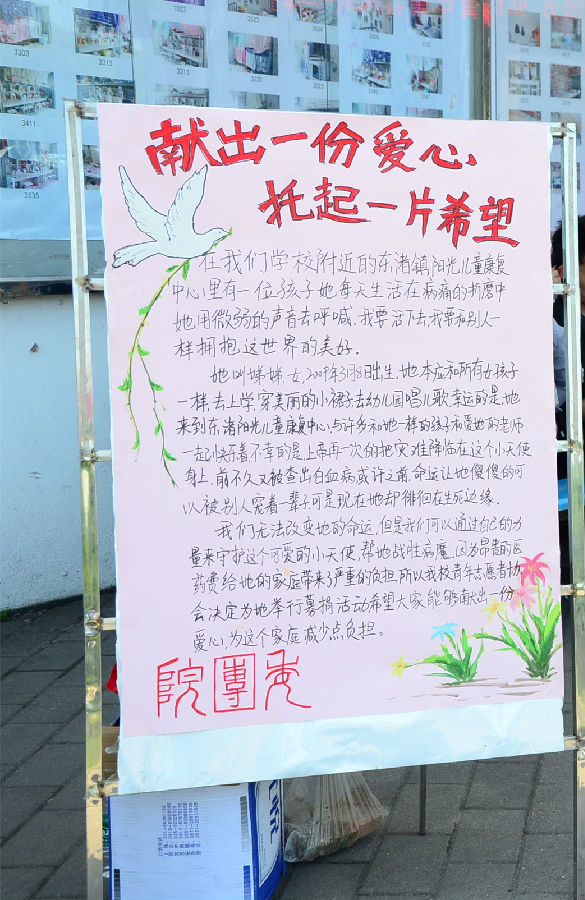 献出一份爱心
托起一片希望
在我们学校附近的东渚镇阳光儿童康复
中心里有一位孩子她每天生活在病痛的折磨中
她用微弱的声音去呼喊,我要活下去,我要和别人一
样拥抱这世界的美好.
她叫娣娣.女,2009年3月8日出生,她本应和所有女孩子
一样,去上学穿美丽的小裙子去幼儿园唱儿歌幸运的是地
来到东渚阳光儿童康复中心,与许多和她一样的孩子和爱她的老师
一起快乐着不幸的是上帝再一次的把灾难降临在这个小天使
身上,前不久又被查出白血病或许之前,命运让她傻傻的可
以被别人宠着一辈子可是现在地却徘徊在生死边缘.
我们无法改变地的命运,但是我们可以通过自己的力
量来守护这个可爱的小天使,帮她战胜病魔.因为昂贵的医
药费给她的家庭带来了严重的负担,所以我校青年志愿者协
会决定为她举行募捐活动希望大家能够献出一份
爱心,为这个家庭减少点负担。
院團委
3503
3303
3411
3203
3535